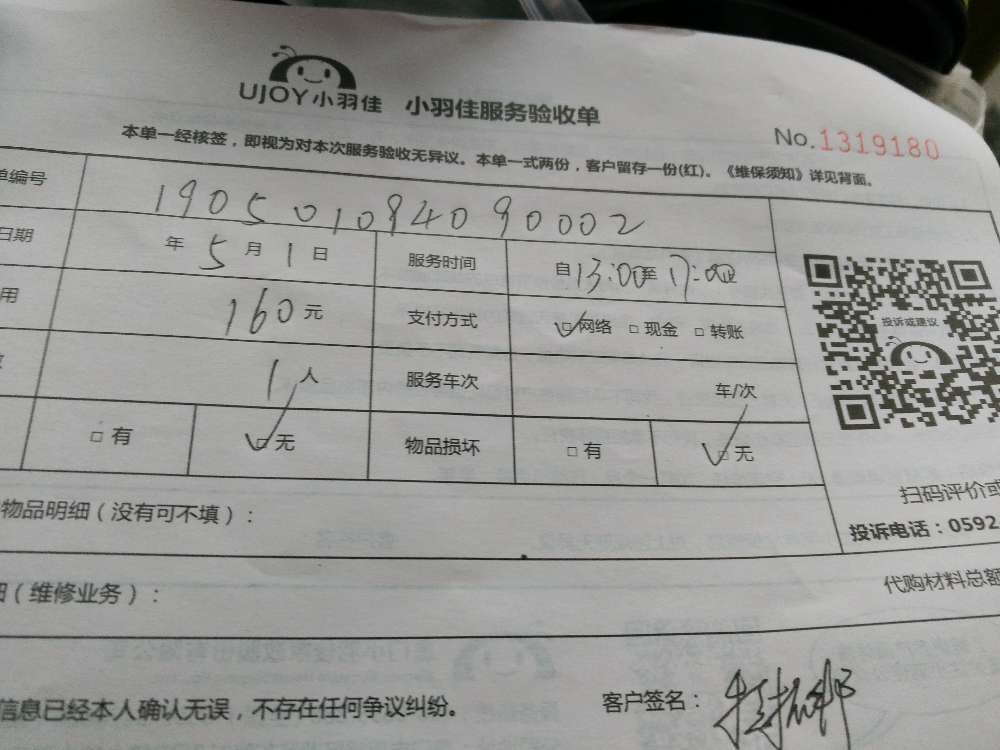 UJOY小羽佳 小羽佳服务验收单
No.1319180
本单一经核签，即视为对本次服务验收无异议。本单一式两份，客户留存一份(红)。《维保须知》详见背面。
单编号 190501084090002
日期 年 5 月 1 日 服务时间 自13:00至17:00止
用 160 元 支付方式 网络 现金 转账
投诉或建议
1 人 服务车次 车/次
有 无 物品损坏 有 无
扫码评价或
物品明细（没有可不填）：
投诉电话：0592
细（维修业务）：
代购材料总额
信息已经本人确认无误，不存在任何争议纠纷。 客户签名：